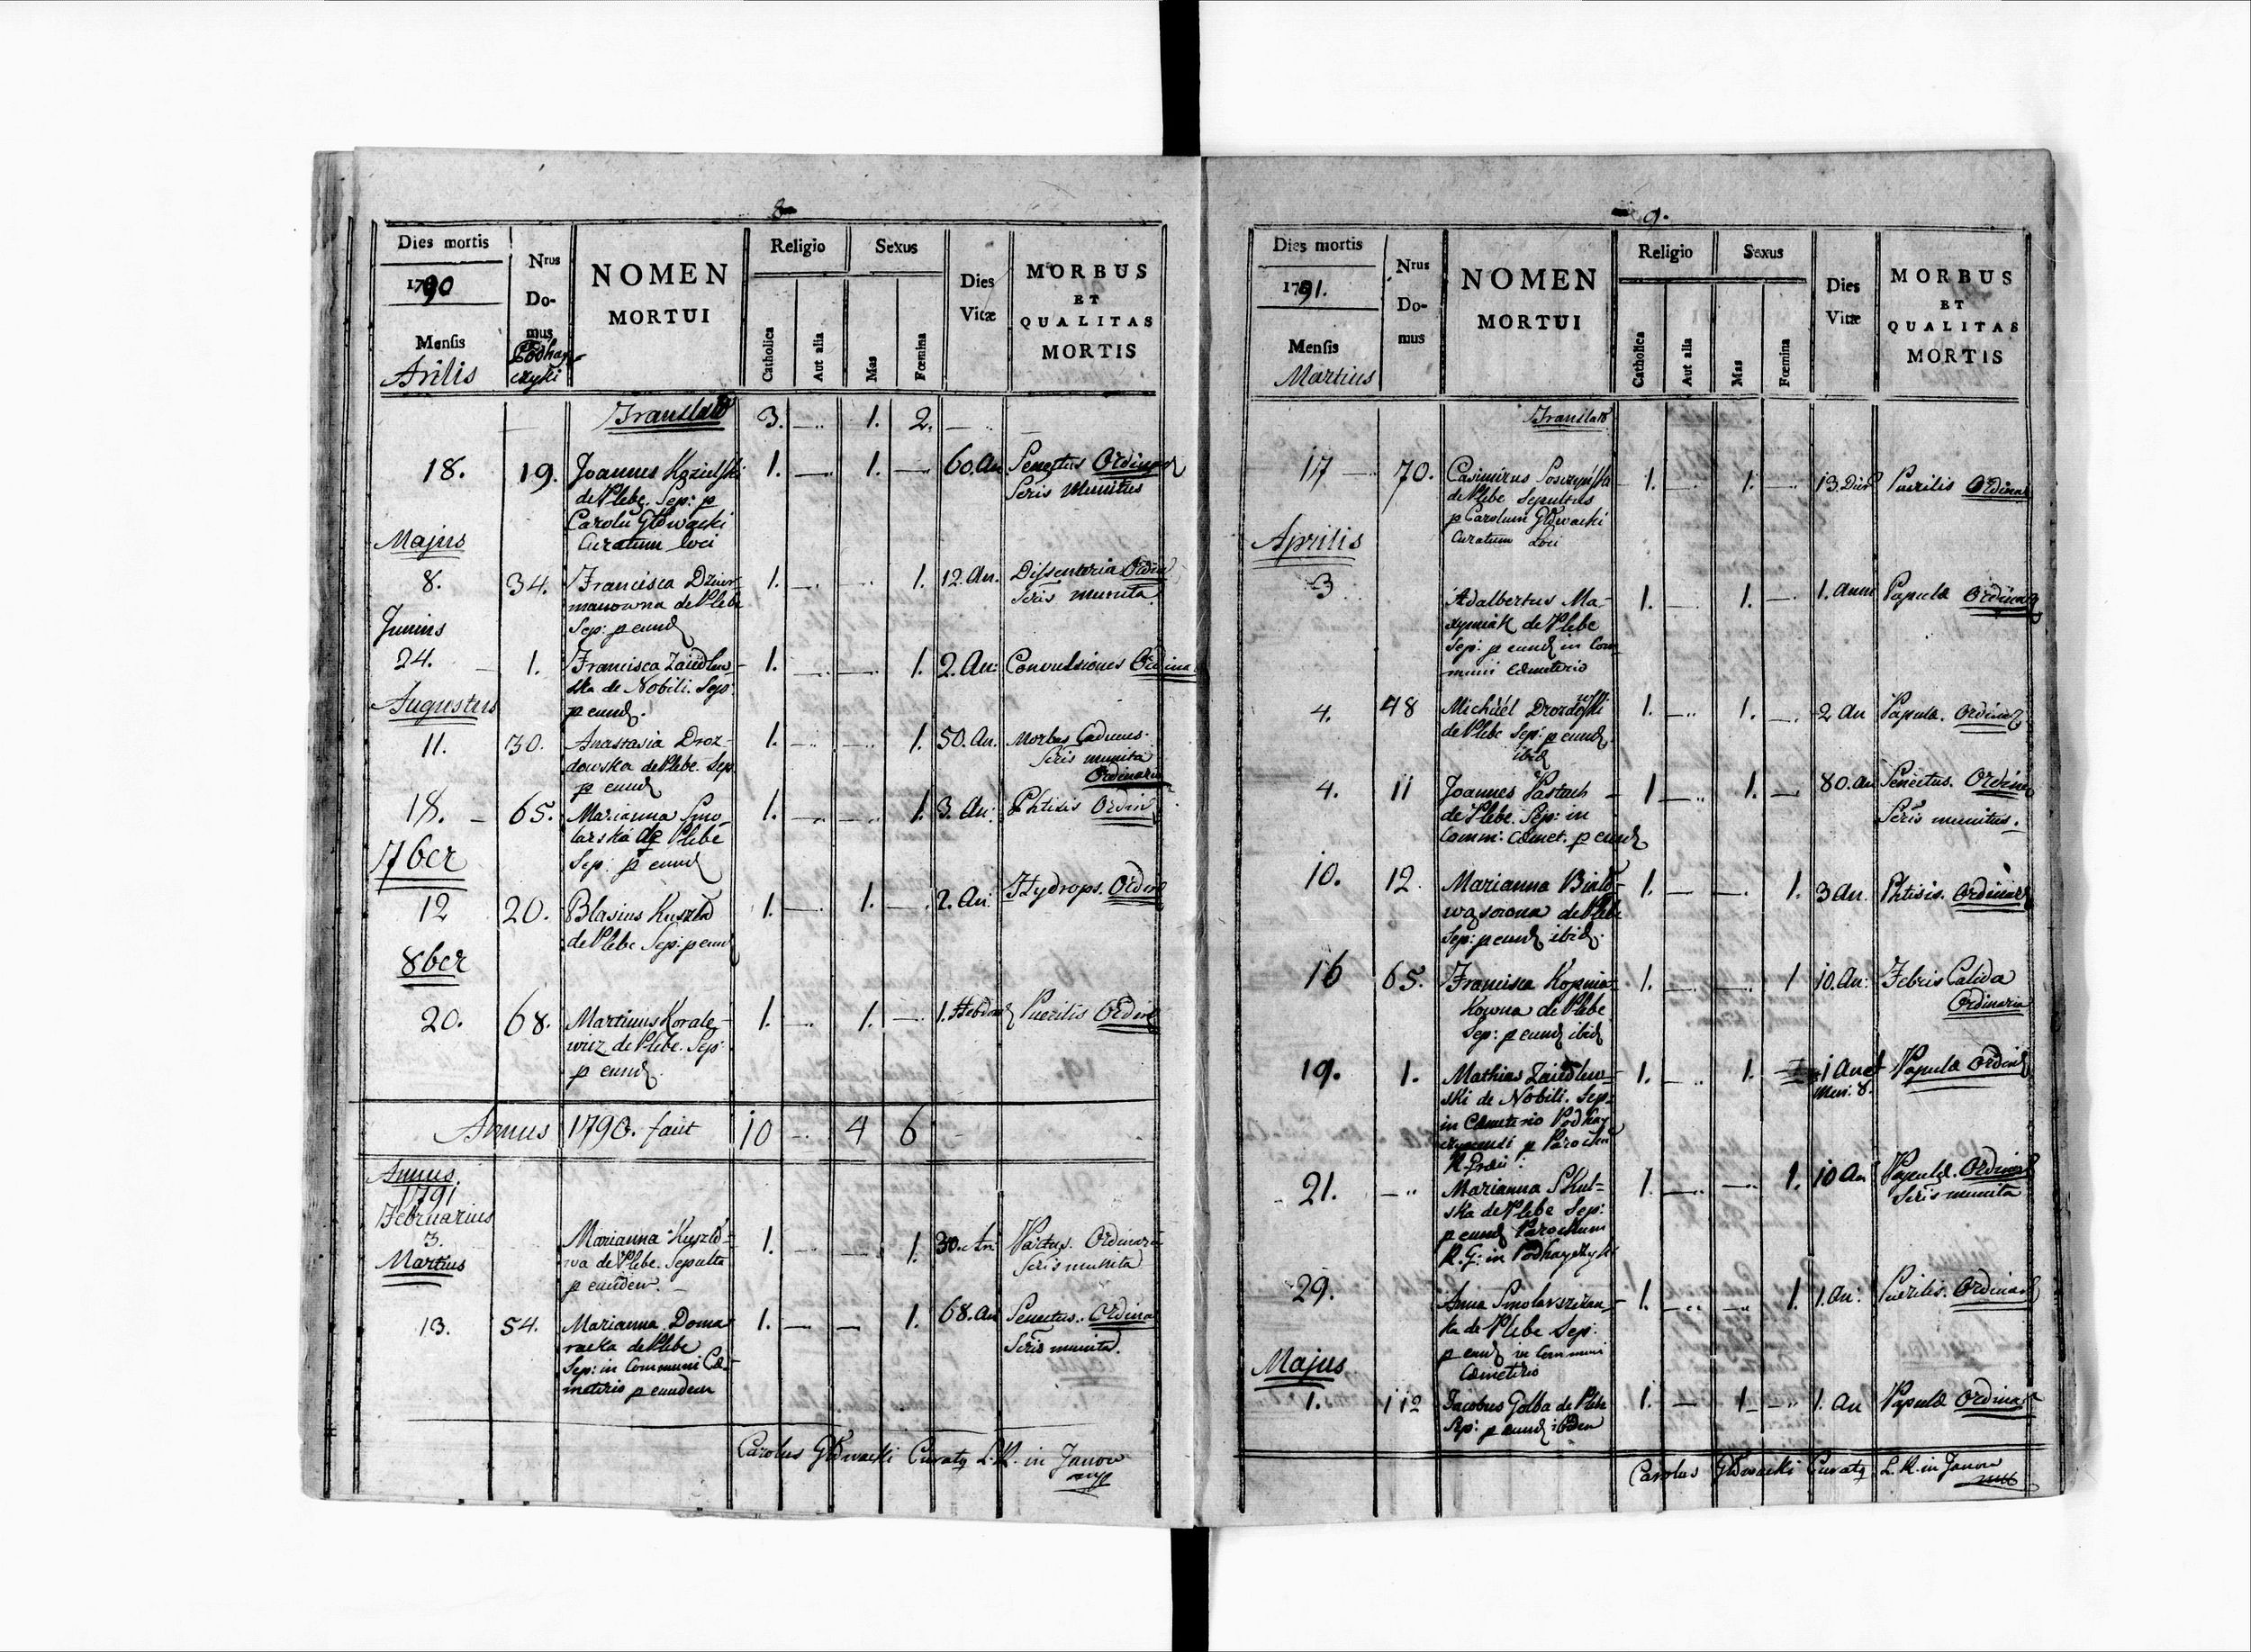 8
Dies mortis
1790
Mensis
Aprilis
Nrus
Do-
mus
Podhay-
czyki
NOMEN
MORTUI
Religio
Catholica
Aut alia
Sexus
Mas
Fœmina
Dies
Vitæ
MORBUS
ET
QUALITAS
MORTIS
Translato 3. 1. 2.
18. 19. Joannes Kozielski 1. 1. 60. An Senectus Ordinar
de Plebe. Sep: p Scris Munitus
Carolu Głowacki
Curatum loci
Majus
8. 34. Francisca Dziur- 1. 1. 12. An. Dissenteria Ordin
manowna de Plebe Scris munita
Sep: p eund
Junius
24. 1. Francisca Zaiedlew- 1. 1. 2. An: Convulsiones Ordina
ska de Nobili. Sep:
p eund.
Augustus
11. 30. Anastasia Droz- 1. 1. 50. An. Morbus Caducus.
dowska de Plebe. Sep. Scris munita
p eund Ordinaria
18. 65. Marianna Smo- 1. 1. 3. An: Phtisis Ordin
larska de Plebe
Sep: p eund
7ber
12 20. Blasius Kuszło 1. 1. 2. An: Hydrops. Ordin
de Plebe Sep: p eund
8ber
20. 68. Martinus Korale- 1. 1. 1. Hebdom Puerilis Ordin
wicz de Plebe. Sep:
p eund.
Annus 1790. facit 10 4 6
Annus
1791
Februarius
3. Marianna Kuszło- 1. 1. 30. An: Partus. Ordinaria
wa de Plebe. Sepulta Scris munita
p eundem.
Martius
13. 54. Marianna Doma 1. 1. 68. An Senectus. Ordina
racka de Plebe Scris munita.
Sep: in Communi Cæ-
meterio p eundem
Carolus Głowacki Curatq L. R. in Janow
mpp
9.
Dies mortis
1791.
Mensis
Martius
Nrus
Do-
mus
NOMEN
MORTUI
Religio
Catholica
Aut alia
Sexus
Mas
Fœmina
Dies
Vitæ
MORBUS
ET
QUALITAS
MORTIS
Translato
17 70. Casimirus 1. 1. 13. Dier Puerilis Ordinar
de Plebe Sepultus
p Carolum Głowacki
Curatum Loci
Aprilis
3 Adalbertus Ma- 1. 1. 1. Anni Papulæ Ordinar
xymiak de Plebe
Sep: p eund in Com
muni Cæmeterio
4. 48 Michaël Drozdowski 1. 1. 2 An Papulæ. Ordinar
de Plebe Sep: p eund
ibid
4. 11 Joannes Pastach 1 1. 80. An Senectus. Ordin
de Plebe. Sep: in Scris munitus.
Comm: Cæmet. p eund
10. 12. Marianna Biało- 1. 1. 3 An. Phtisis. Ordinar
wąsowna de Plebe
Sep: p eund ibid.
16 65. Francisca Kopnia- 1. 1 10. An: Febris Calida
kowna de Plebe Ordinaria
Sep: p eund ibid
19. 1. Mathias Zaiedlew- 1. 1. 1 An et Papulæ Ordin
ski de Nobili. Sep: Men: 8.
in Cæmeterio Podhay
czycensi p Parochu
R. Græci.
21. Marianna Skul- 1. 1. 10 An Papulæ. Ordinar
ska de Plebe Sep: Scris munita
p eund Parochum
R. G: in Podhayczyki
29. Anna Smolarszczan- 1. 1. 1. An: Puerilis. Ordinar
ka de Plebe Sep:
p eund in Communi
Cæmeterio
Majus
1. 112 Jacobus Golba de Plebe 1. 1 1. An Papulæ Ordinar
Sep: p eund ibidem
Carolus Głowacki Curatq L. R. in Janow
mpp